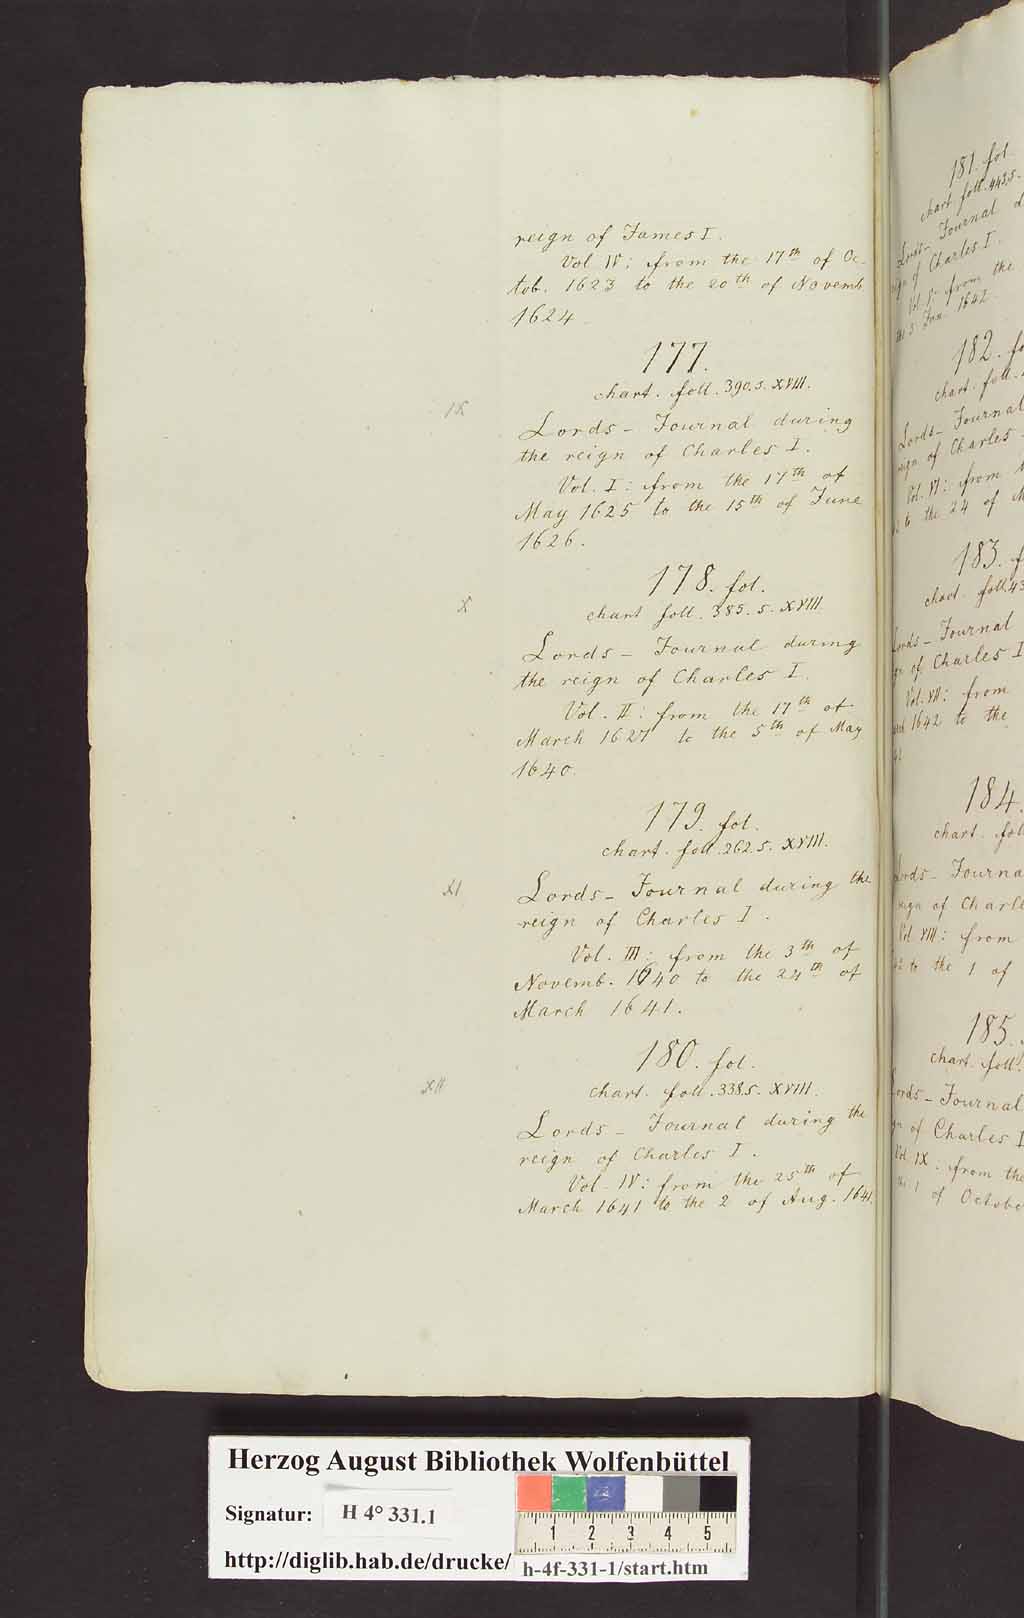 reign of James I.
Vol. IV: from the 17th of Oc-
tob. 1623 to the 20th of Novemb.
1624.
177.
chart. foll. 390. s. XVIII.
IX
Lords-Journal during
the reign of Charles I.
Vol. I: from the 17th of
May 1625 to the 15th of June
1626.
178. fol.
chart foll. 385. s. XVIII.
X
Lords-Journal during
the reign of Charles I.
Vol. II: from the 17th of
March 1627 to the 5th of May
1640.
179. fol.
chart. foll. 262. s. XVIII.
XI
Lords-Journal during the
reign of Charles I.
Vol. III: from the 3th of
Novemb. 1640 to the 24th of
March 1641.
180. fol.
chart. foll. 338. s. XVIII.
XII
Lords-Journal during the
reign of Charles I.
Vol. IV: from the 25th of
March 1641 to the 2 of Aug. 1641.
181. fol.
chart. foll. 443. s.
Lords-Journal
of Charles I.
Vol. V: from the
the 5 Jan. 1642.
182.
chart. foll.
Lords-Journal
of Charles
Vol. VI: from
to the 24 of
183.
chart. foll.
Lords-Journal
of Charles I
Vol. VII: from
1642 to the
184.
chart.
Lords-Journa
reign of Charle
Vol. VIII: from
to the 1 of
185.
chart. foll.
Lords-Journal
of Charles I
Vol. IX: from the
the 1 of Octobe
Herzog August Bibliothek Wolfenbüttel
Signatur: H 4° 331.1
http://diglib.hab.de/drucke/ h-4f-331-1/start.htm
1 2 3 4 5